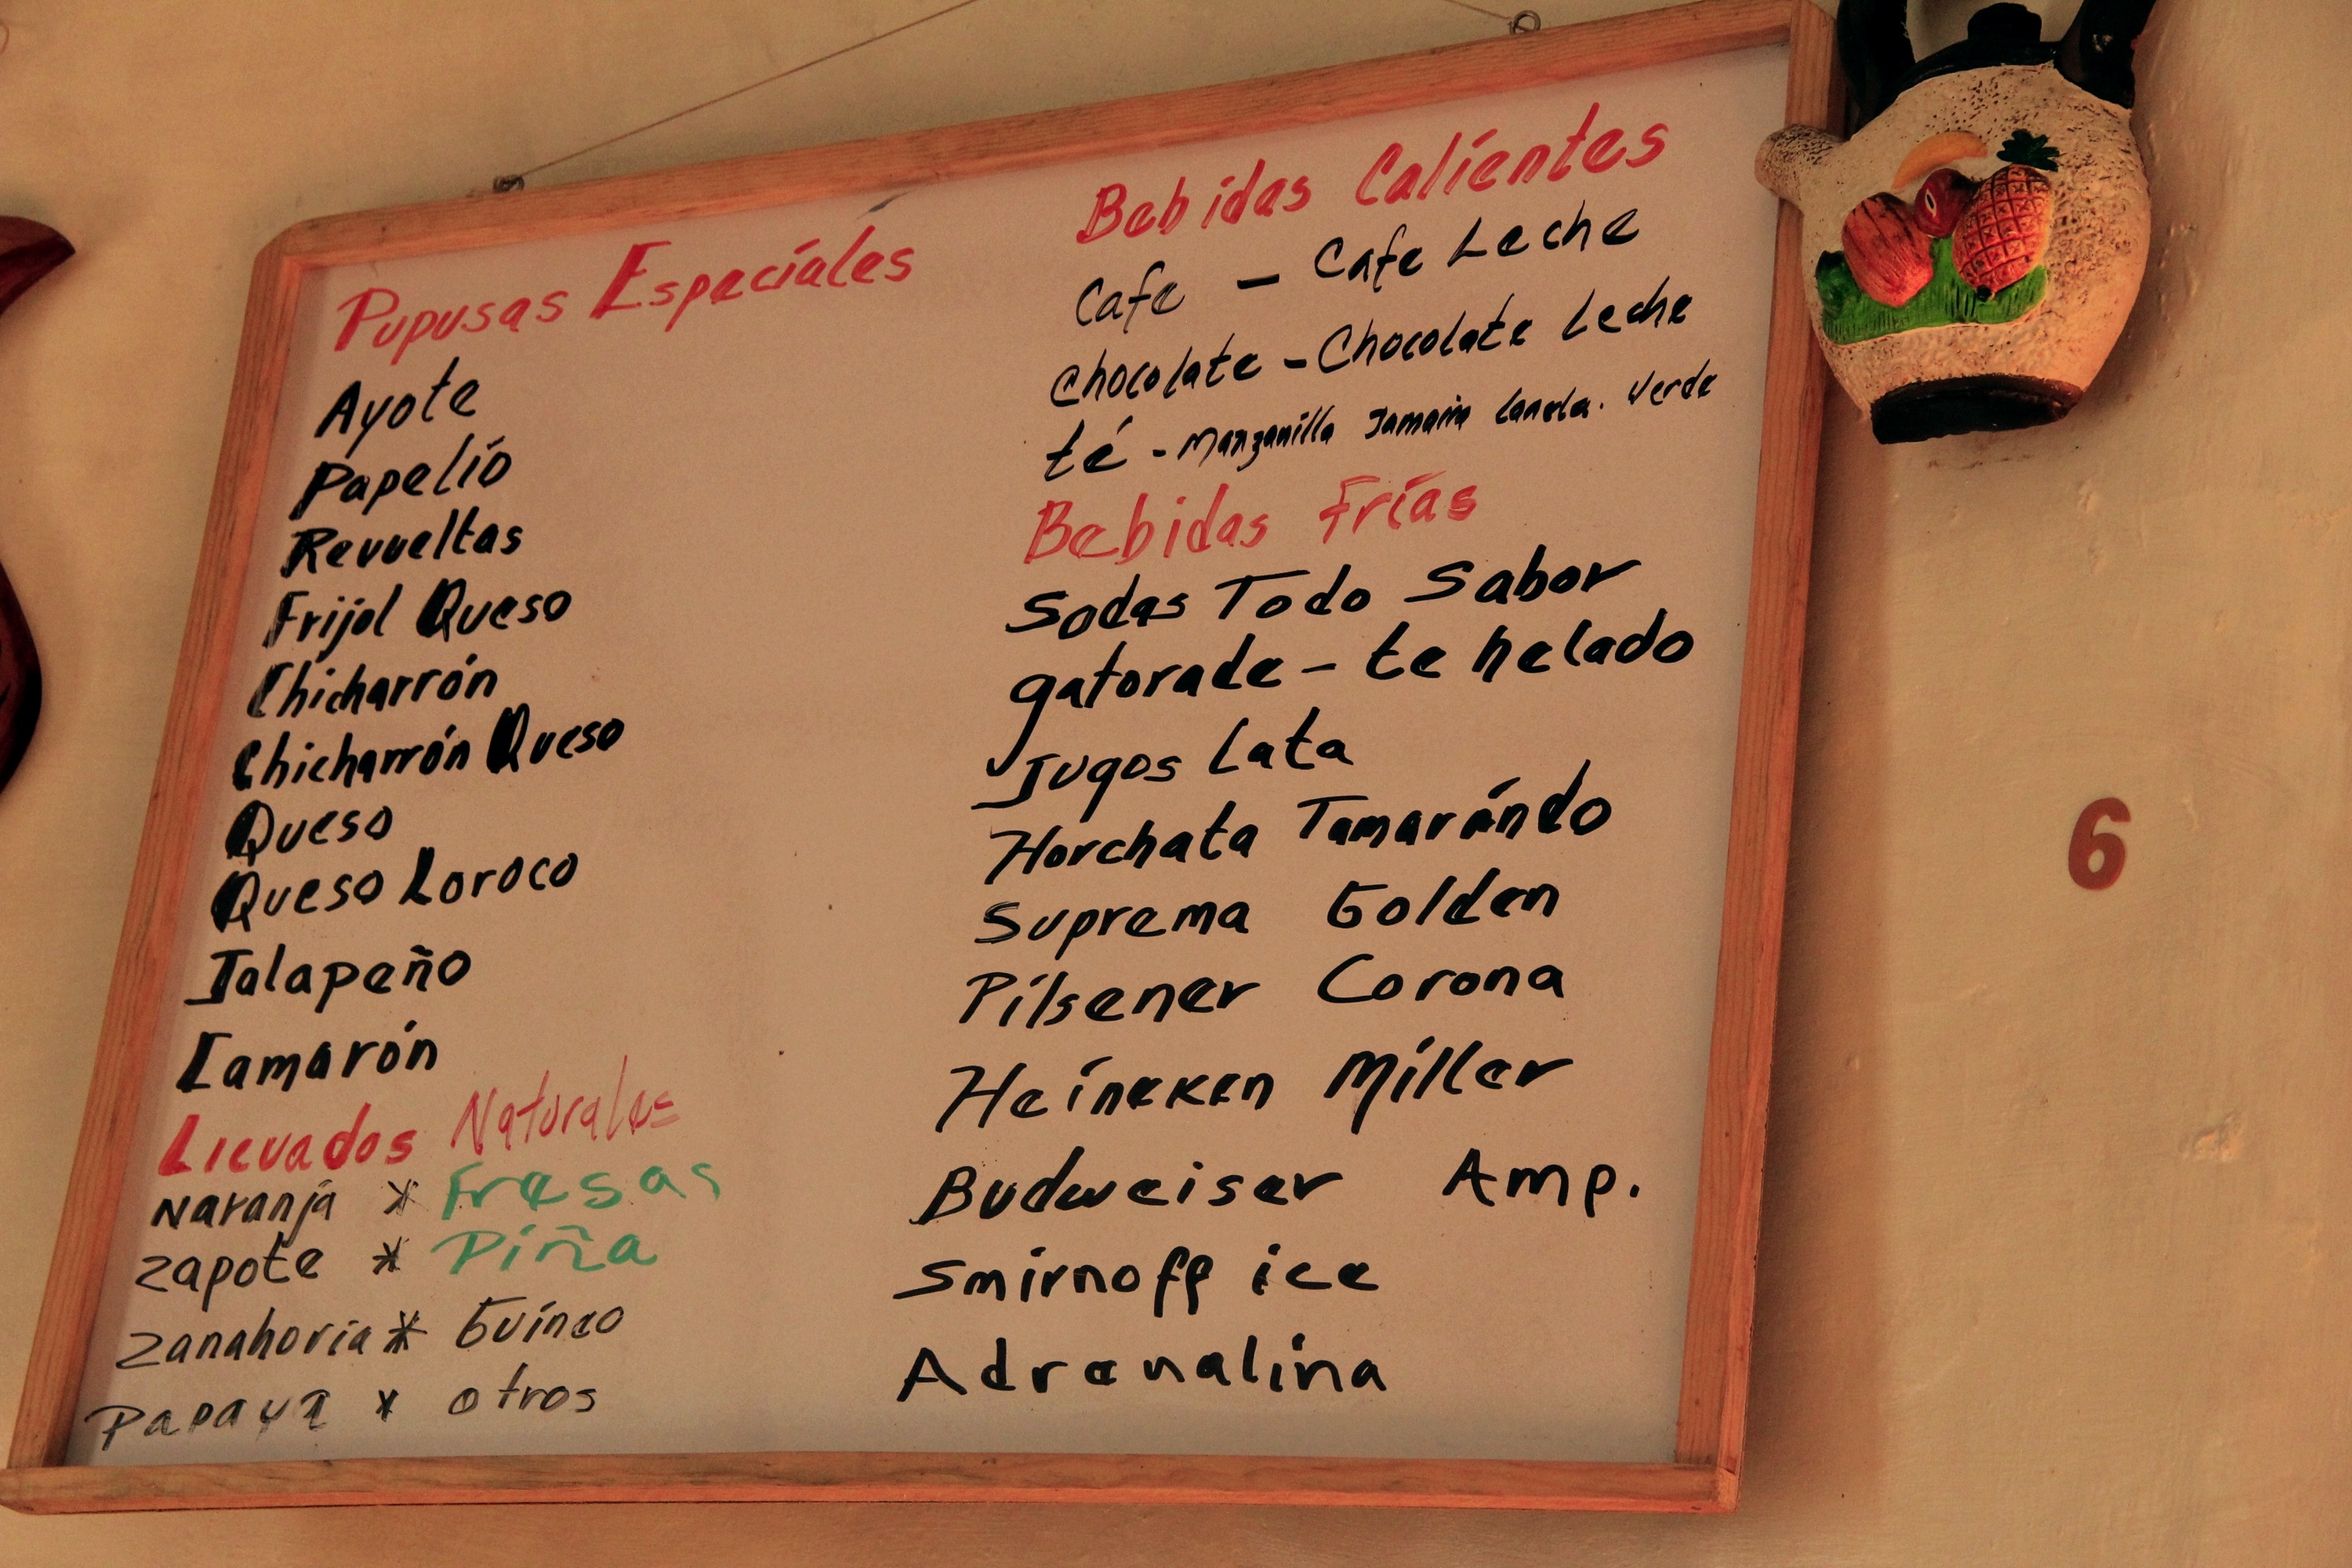 Pupusas Especiales
Ayote
Papelío
Revueltas
Frijol Queso
Chicharrón
Chicharrón Queso
Queso
Queso Loroco
Jalapeño
Camarón
Licuados Naturales
Naranja * Fresas
Zapote * Piña
Zanahoria * Guíneo
Papaya * otros
Bebidas Calíentes
Cafe - Cafe Leche
Chocolate - Chocolate Leche
té - Manzanilla Jamaica Canela. Verde
Bebidas Frías
Sodas Todo Sabor
gatorade - te helado
Jugos Lata
Horchata Tamaríndo
Suprema Golden
Pílsener Corona
Heíneken Míller
Budweiser Amp.
Smirnoff ice
Adrenalina
6